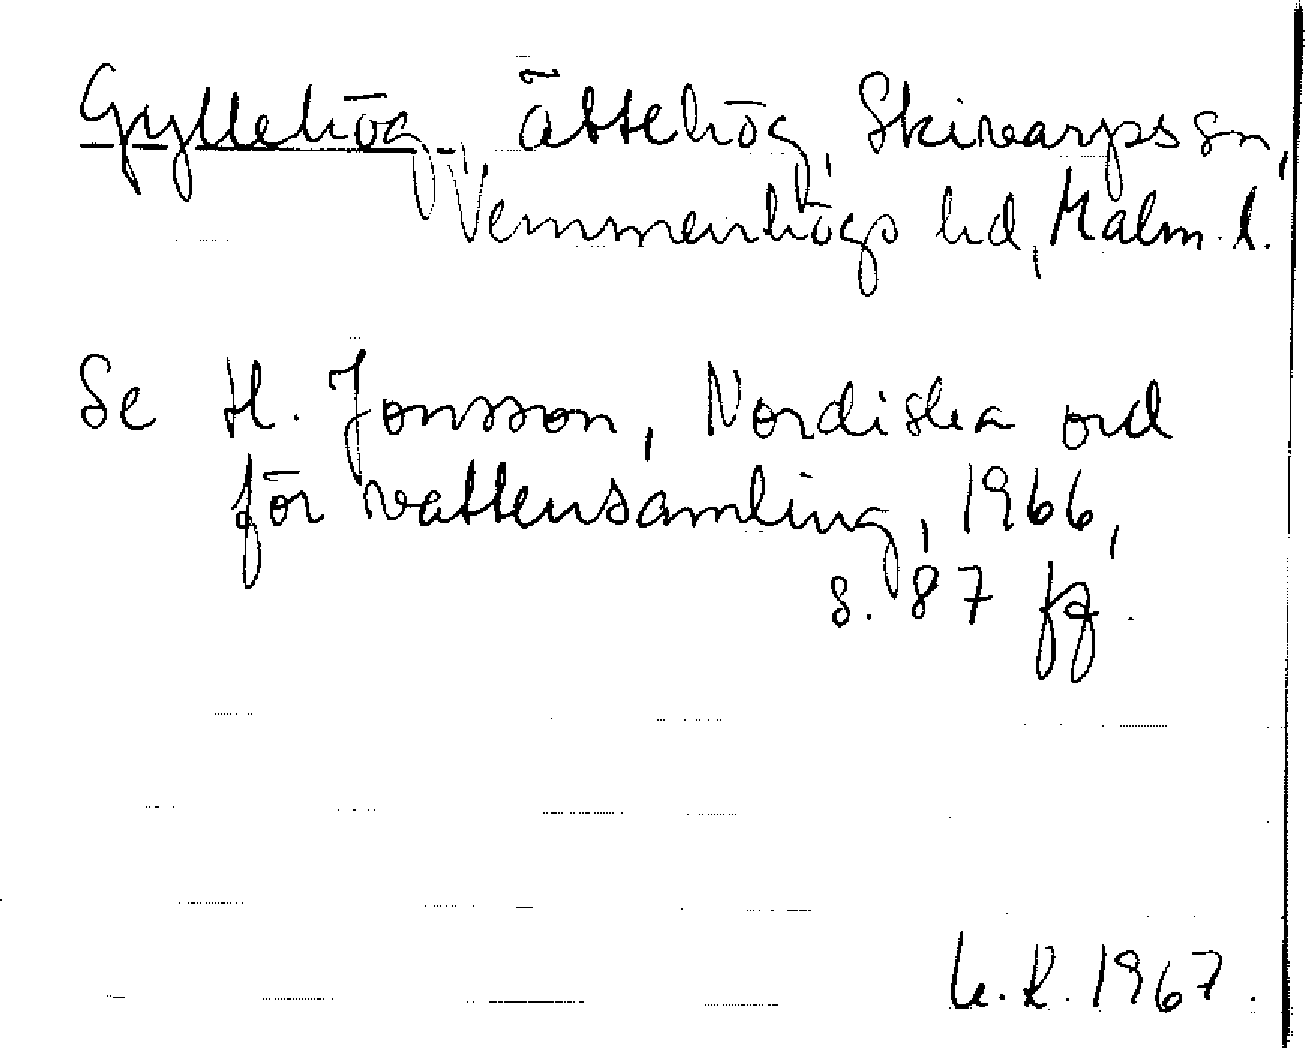 Gyllehög, ättehög, Skivarps sn,
Vemmenhögs hd, Malm. l.
Se H. Jonsson, Nordiska ord
för vattensamling, 1966,
s. 87 ff.
1967.